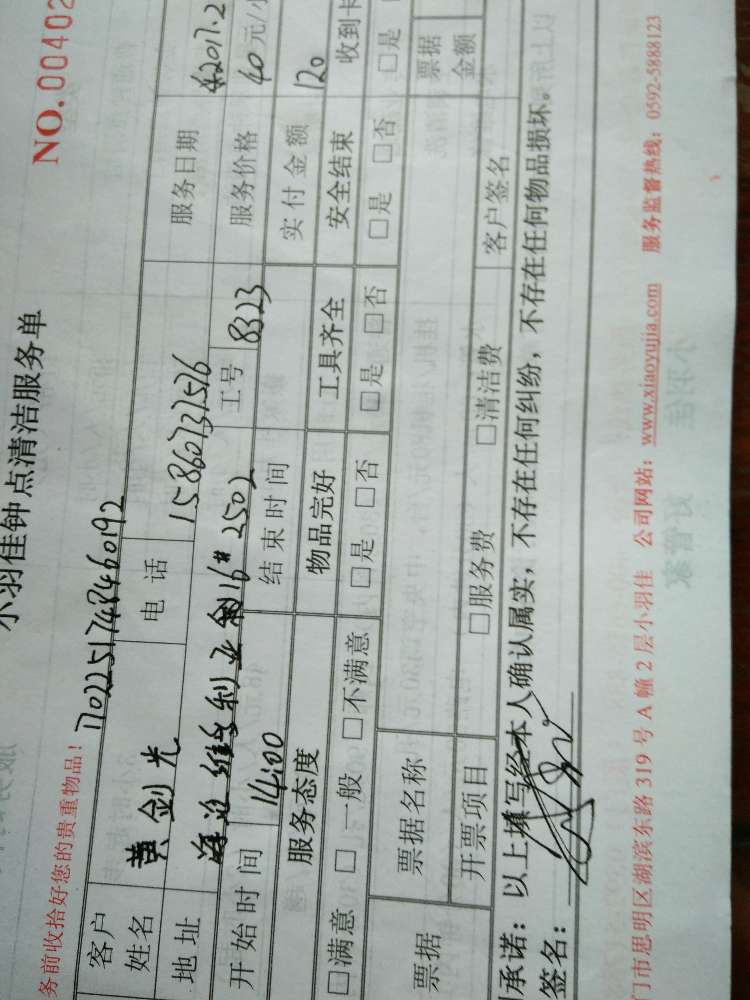 小羽佳钟点清洁服务单
NO.00402
务前收拾好您的贵重物品！
1702251748460192
客户姓名 黄剑光 电话 15860731576 服务日期 2017.2
地址 海沧维多利亚 16# 2502 工号 8323 服务价格 40元/
开始时间 14:00 结束时间 实付金额 120
服务态度 物品完好 工具齐全 安全结束 收到卡
□满意 □一般 □不满意 □是 □否 □是 □否 □是 □否 □是
票据 票据名称 票据金额
开票项目 □服务费 □清洁费 客户签名
承诺：以上填写经本人确认属实，不存在任何纠纷，不存在任何物品损坏。
签名：
门市思明区湖滨东路319号A幢2层小羽佳 公司网站：www.xiaoyujia.com 服务监督热线：0592-5888123